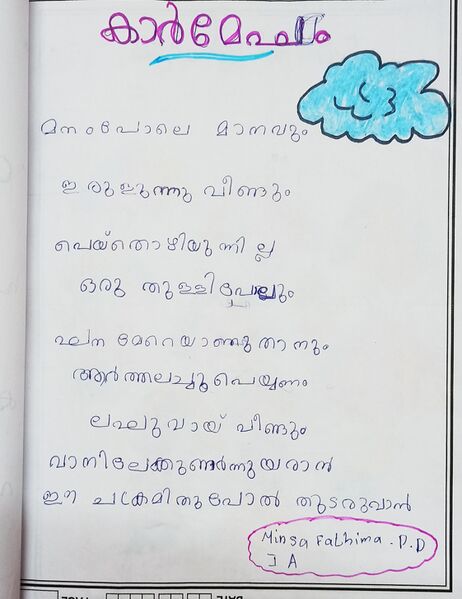 കാർമേഘം
മനംപോലെ മാനവും
ഇരുളുന്നു വീണ്ടും
പെയ്തൊഴിയുന്നില്ല
ഒരു തുള്ളിപോലും
ഘന മേറെയാണു താനും
ആർത്തലച്ചുപെയ്യണം
ലഘുവായ് വീണ്ടും
വാനിലേക്കുണർന്നുയരാൻ
ഈ ചക്രമിതുപോൽ തുടരുവാൻ
Minsa Fathima . P.D
I A